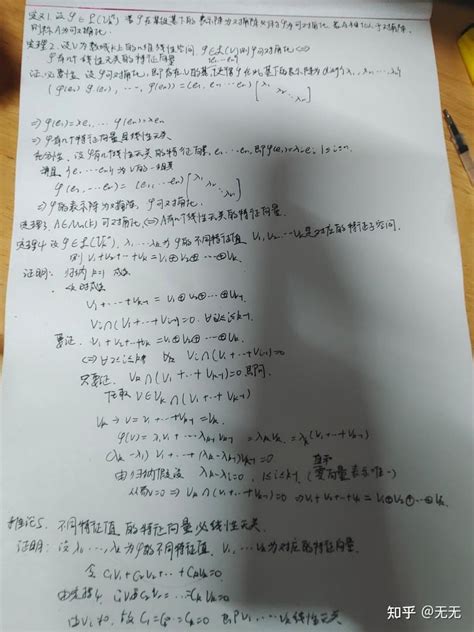 定义1. 设φ∈L(V) 若φ在某组基下的表示阵为对角阵则称φ为可对角化. 若A相似于对角阵
则称A为可对角化.
定理2. 设V为数域K上的n维线性空间 φ∈L(V)则φ可对角化<=>
φ有n个线性无关的特征向量
证: 必要性 设φ可对角化, 即存在V的基 使得φ在此基下的表示阵为
(φ(e₁) φ(e₂), …, φ(eₙ)) = (e₁, e₂ … eₙ)
=> φ(e₁)=λ₁e₁ … φ(eₙ)=λₙeₙ
=> φ有n个特征向量且线性无关
充分性: 设φ有n个线性无关的特征向量 e₁…eₙ, 即φ(eᵢ)=λᵢeᵢ 1≤i≤n
{e₁…eₙ}为V的一组基
φ(e₁ … eₙ) = (e₁, … eₙ)
=> φ的表示阵为对角阵, φ可对角化
定理3 A∈Mₙ(K) 可对角化 <=> A有n个线性无关的特征向量.
定理4 设φ∈L(V), λ₁…λₖ为φ的不同特征值 V₁, V₂, …Vₖ是对应的特征子空间.
则 V₁+V₂+…+Vₖ=V₁⊕V₂⊕…⊕Vₖ
证明: 归纳 k=1 成立
k-1时成立
V₁+…+Vₖ₋₁=V₁⊕V₂⊕…⊕Vₖ₋₁
Vᵢ∩(V₁+…+Vᵢ₋₁)=0. ∀2≤i≤k-1
要证. V₁+V₂+…+Vₖ=V₁⊕V₂⊕…⊕Vₖ
<=> ∀2≤i≤k Vᵢ∩(V₁+…+Vᵢ₋₁)=0
只要证. Vₖ∩(V₁+…+Vₖ₋₁)=0 即可
任取 v∈Vₖ∩(V₁+…+Vₖ₋₁)
v=v₁+…+vₖ₋₁
φ(v)=λ₁v₁+…+λₖ₋₁vₖ₋₁=λₖv=λₖ(v₁+…+vₖ₋₁)
(λₖ-λ₁)v₁+…+(λₖ-λₖ₋₁)vₖ₋₁=0 直和
由归纳假设 λₖ-λᵢ 0, 1≤i≤k-1 (零向量表示唯一)
从而v=0 => Vₖ∩(V₁+…+Vₖ₋₁)=0 => V₁+V₂+…+Vₖ=V₁⊕V₂⊕…⊕Vₖ
推论5. 不同特征值的特征向量必线性无关.
证明: 设λ₁…,λₖ为φ的不同特征值, v₁, …vₖ为对应的特征向量.
令 C₁v₁+C₂v₂+…+Cₖvₖ=0
由定理4, C₁v₁=C₂v₂=…=Cₖvₖ=0
由vᵢ≠0, 故C₁=C₂=…=Cₖ=0 即v₁…vₖ线性无关
知乎 @无无